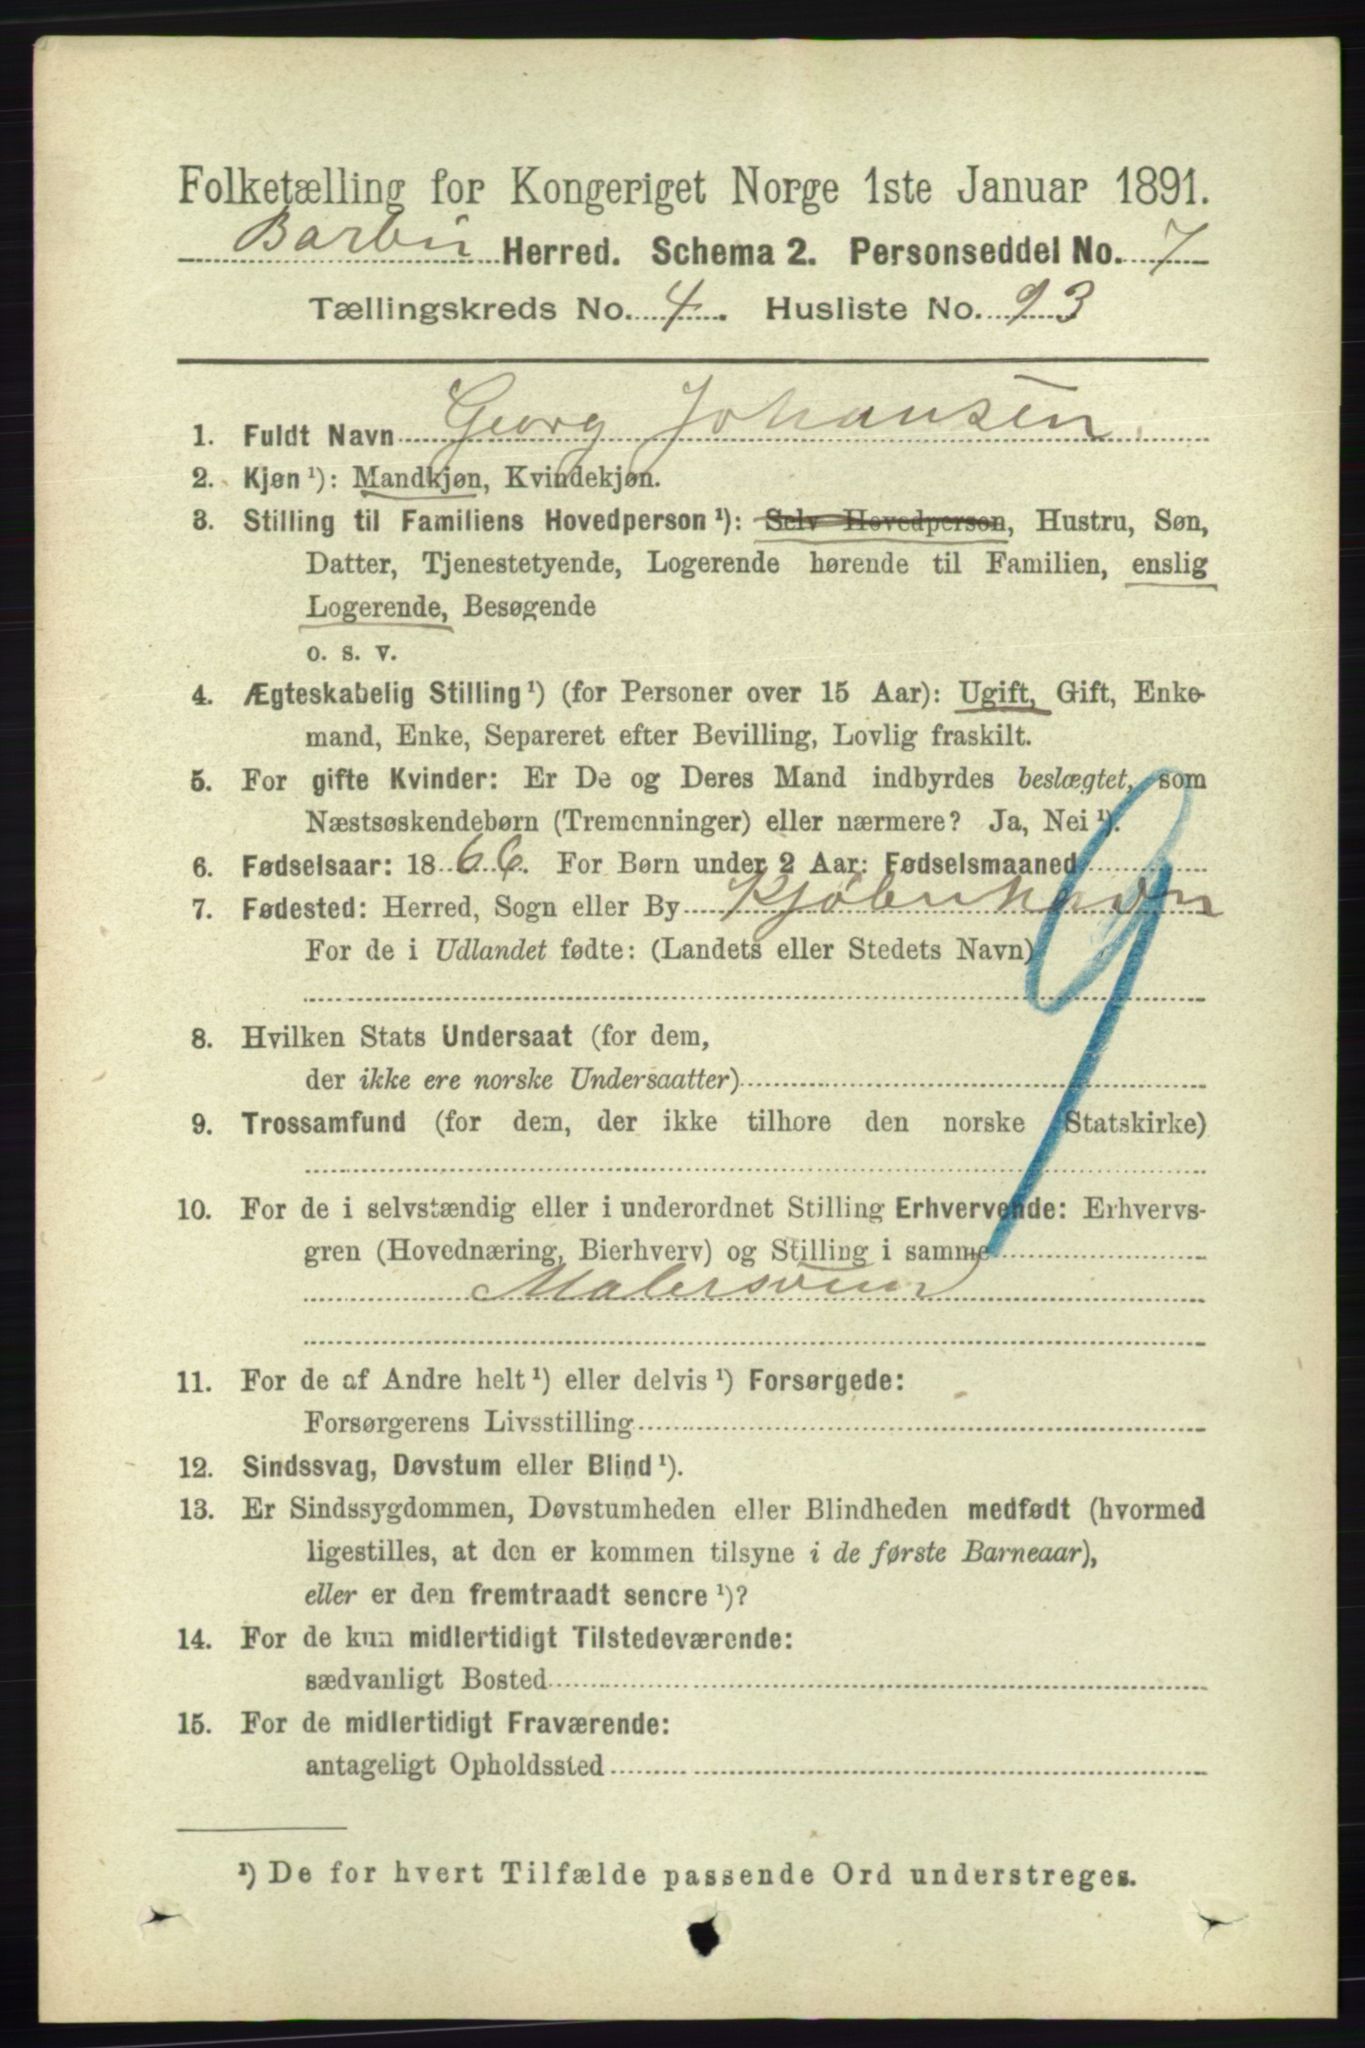 Folketælling for Kongeriget Norge 1ste Januar 1891.
Barbu Herred. Schema 2. Personseddel No. 7
Tællingskreds No. 4. Husliste No. 93
1. Fuldt Navn Georg Johansen
2. Kjøn ¹): Mandkjøn, Kvindekjøn.
3. Stilling til Familiens Hovedperson ¹): Selv Hovedperson, Hustru, Søn,
Datter, Tjenestetyende, Logerende hørende til Familien, enslig
Logerende, Besøgende
o. s. v.
4. Ægteskabelig Stilling ¹) (for Personer over 15 Aar): Ugift, Gift, Enke-
mand, Enke, Separeret efter Bevilling, Lovlig fraskilt.
5. For gifte Kvinder: Er De og Deres Mand indbyrdes beslægtet, som
Næstsøskendebørn (Tremenninger) eller nærmere? Ja, Nei ¹).
6. Fødselsaar: 1866. For Børn under 2 Aar: Fødselsmaaned
7. Fødested: Herred, Sogn eller By Kjøbenhavn
For de i Udlandet fødte: (Landets eller Stedets Navn)
9
8. Hvilken Stats Undersaat (for dem,
der ikke ere norske Undersaatter)
9. Trossamfund (for dem, der ikke tilhøre den norske Statskirke)
10. For de i selvstændig eller i underordnet Stilling Erhvervende: Erhvervs-
gren (Hovednæring, Bierhverv) og Stilling i samme
Malersvenn
11. For de af Andre helt ¹) eller delvis ¹) Forsørgede:
Forsørgerens Livsstilling
12. Sindssvag, Døvstum eller Blind ¹).
13. Er Sindssygdommen, Døvstumheden eller Blindheden medfødt (hvormed
ligestilles, at den er kommen tilsyne i de første Barneaar),
eller er den fremtraadt senere ¹)?
14. For de kun midlertidigt Tilstedeværende:
sædvanligt Bosted
15. For de midlertidigt Fraværende:
antageligt Opholdssted
¹) De for hvert Tilfælde passende Ord understreges.